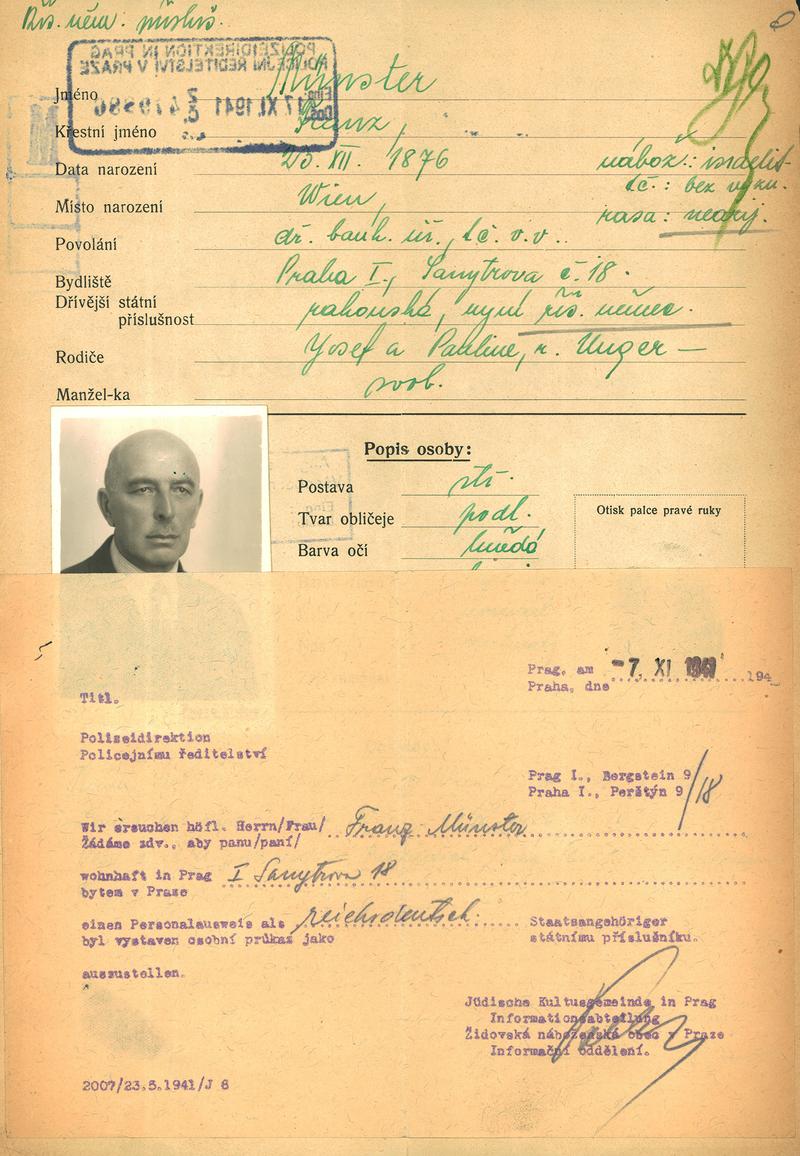 Řís. něm. přísluš.
POLIZEIDIREKTION IN PRAG
POLICEJNÍ ŘEDITELSTVÍ V PRAZE
17 XI. 1941
Jméno Münster
Křestní jméno Franz,
Data narození 25. XII. 1876 nábož.: israelit.
tč.: bez vyzn.
Místo narození Wien, rasa: nearij.
Povolání dř. bank. úř., tč. v.v.
Bydliště Praha I., Sanytrova č. 18.
Dřívější státní
příslušnost rakouská, nyní řís. němec.
Rodiče Josef a Pauline, r. Unger —
Manžel-ka svob.
Popis osoby:
Postava stř.
Tvar obličeje podl.
Barva očí hnědá
Otisk palce pravé ruky
Prag, am -7. XI 1941 194
Praha, dne
Titl.
Polizeidirektion
Policejnímu ředitelství
Prag I., Bergstein 9/18
Praha I., Perštýn 9
Wir ersuchen höfl. Herrn/Frau/ Franz Münster
Žádáme zdv., aby panu/paní/
wohnhaft in Prag I Sanytrova 18
bytem v Praze
einen Personalausweis als reichsdeutsch. Staatsangehöriger
byl vystaven osobní průkaz jako státnímu příslušníku.
auszustellen.
Jüdische Kultusgemeinde in Prag
Informationsabteilung
Židovská náboženská obec v Praze
Informační oddělení.
2007/23.5.1941/J 8